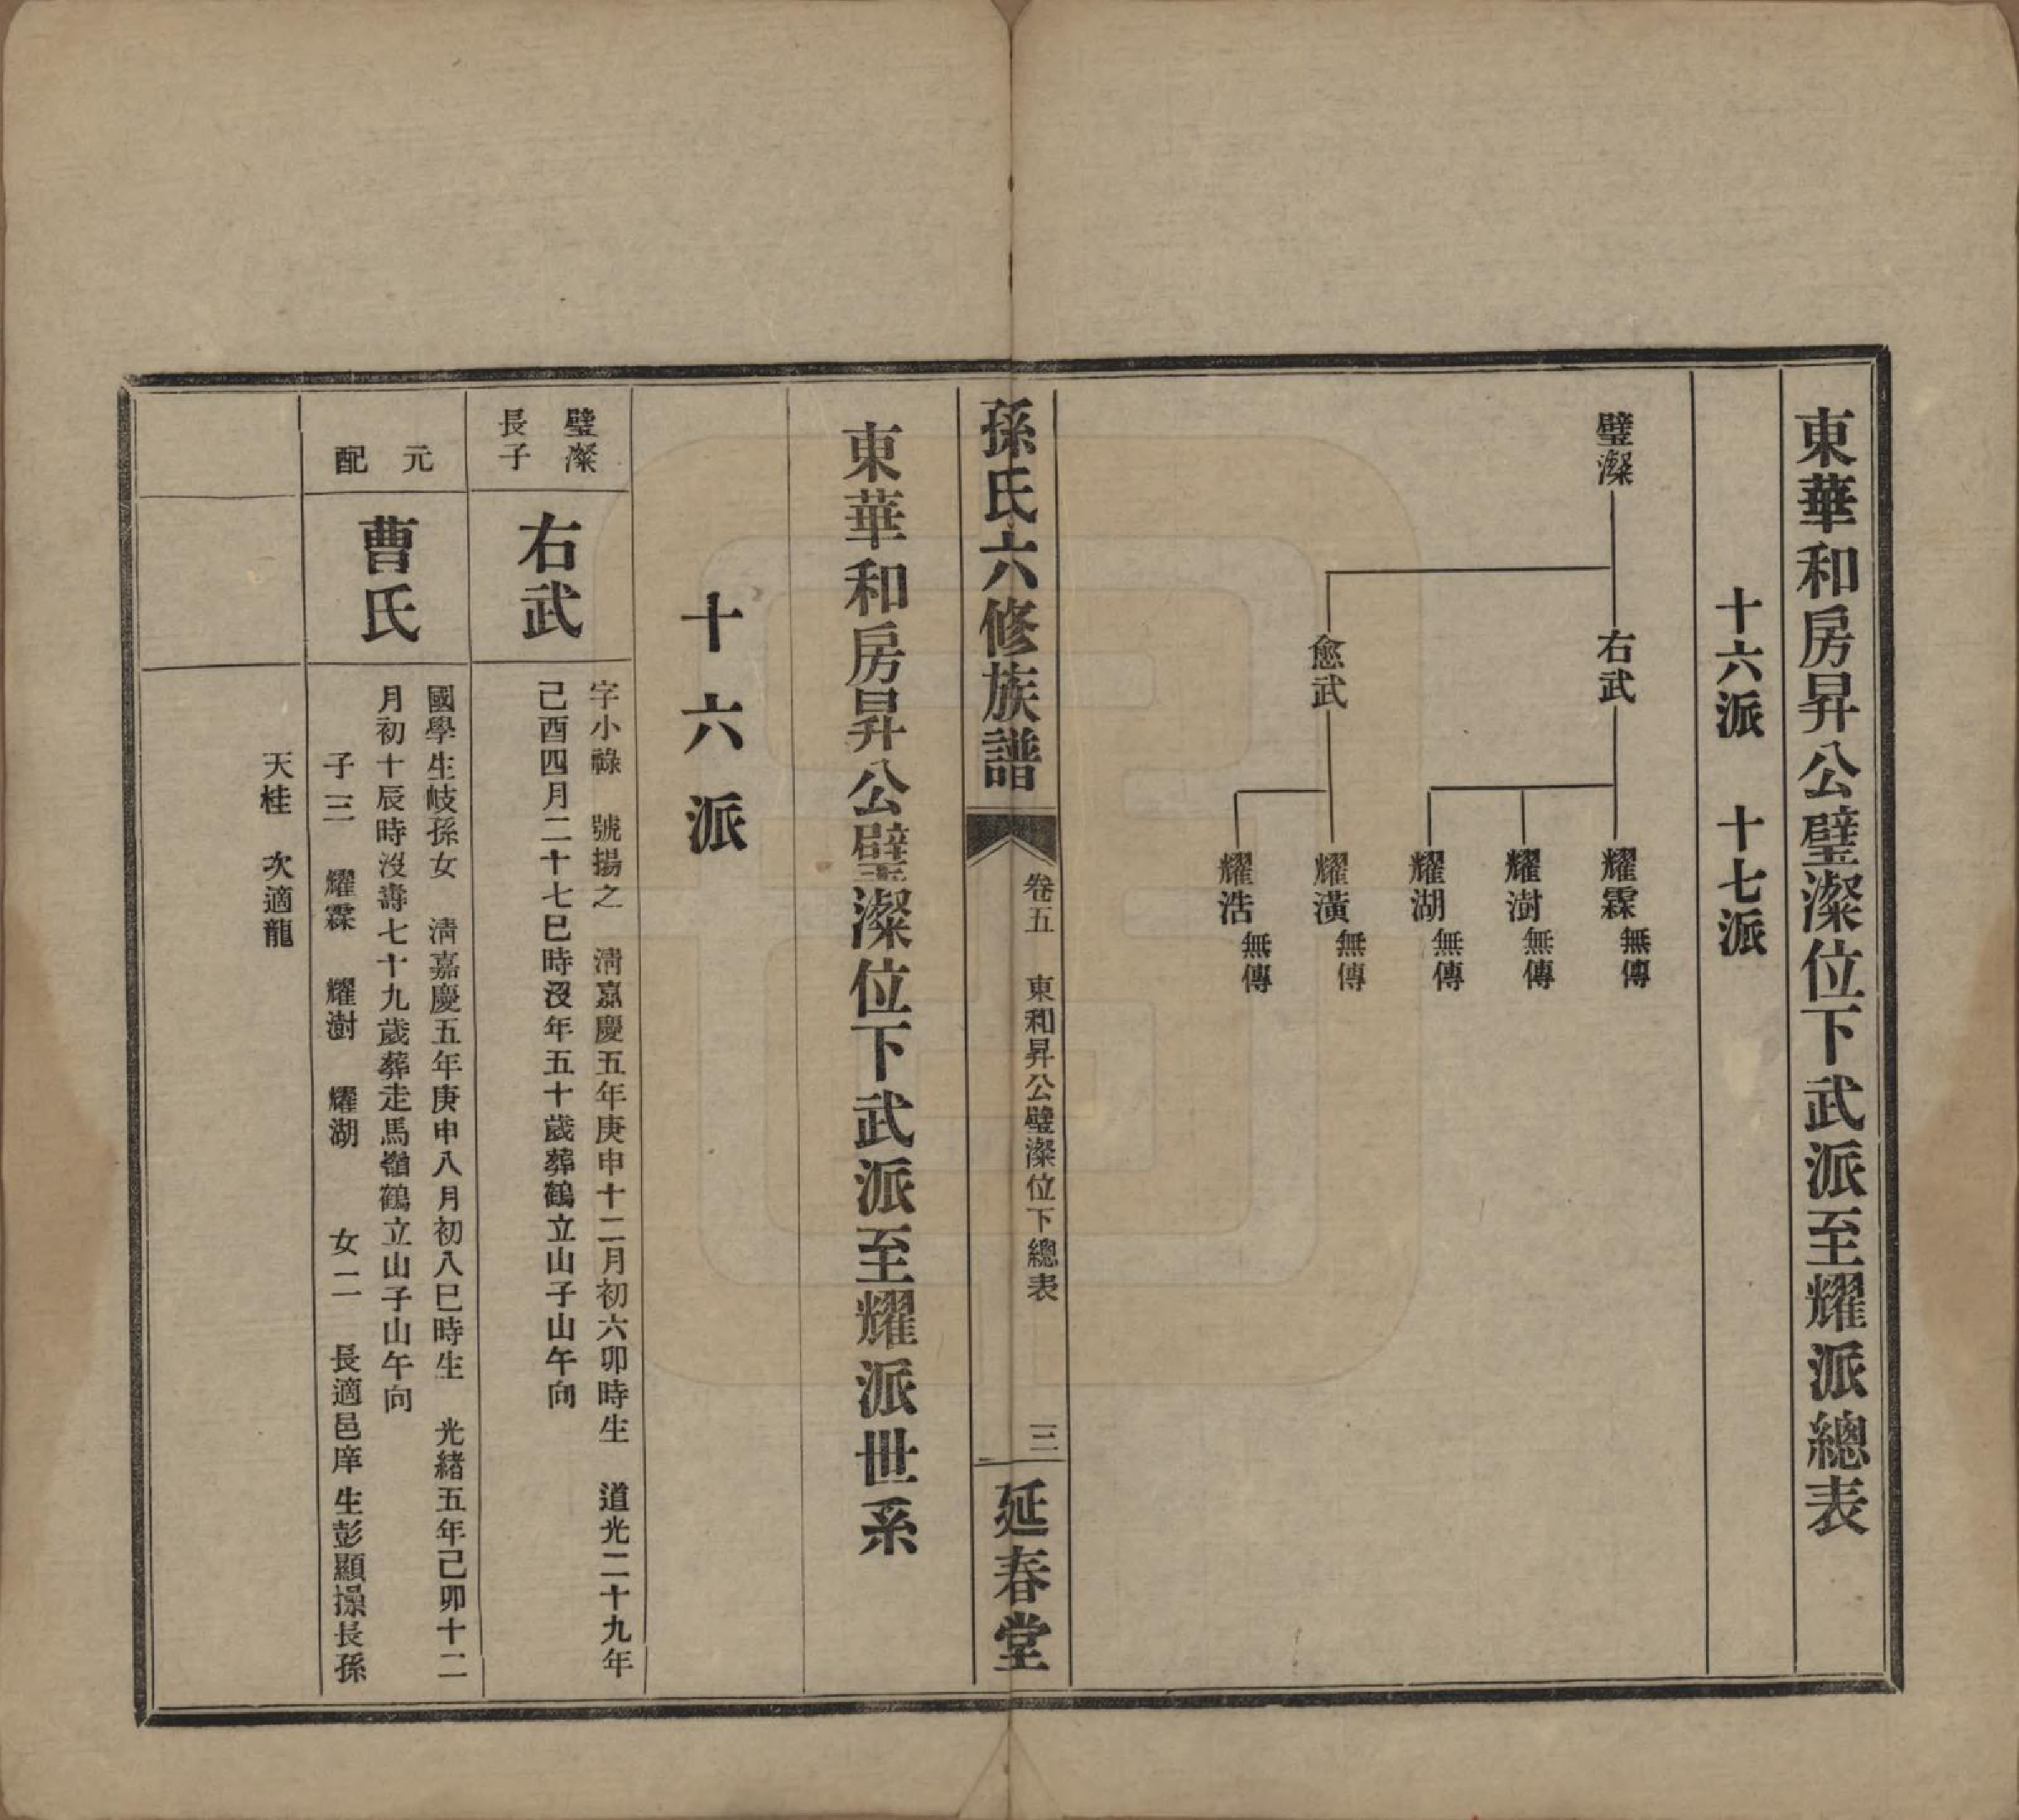 東華和房昇公璧澯位下武派至耀派總表
十六派　十七派
璧澯
右武
愈武
耀霖　無傳
耀澍　無傳
耀湖　無傳
耀潢　無傳
耀浩　無傳
孫氏六修族譜
卷五　東和昇公璧澯位下總表　三
延春堂
東華和房昇公璧澯位下武派至耀派世系
十六派
璧澯
長子
右武
字小祿　號揚之　淸嘉慶五年庚申十二月初六卯時生　道光二十九年
己酉四月二十七巳時沒年五十歲葬鶴立山子山午向
元配
曹氏
國學生岐孫女　淸嘉慶五年庚申八月初八巳時生　光緒五年己卯十二
月初十辰時沒壽七十九歲葬走馬嶺鶴立山子山午向
子三　耀霖　耀澍　耀湖　女二　長適邑庠生彭顯操長孫
天桂　次適龍